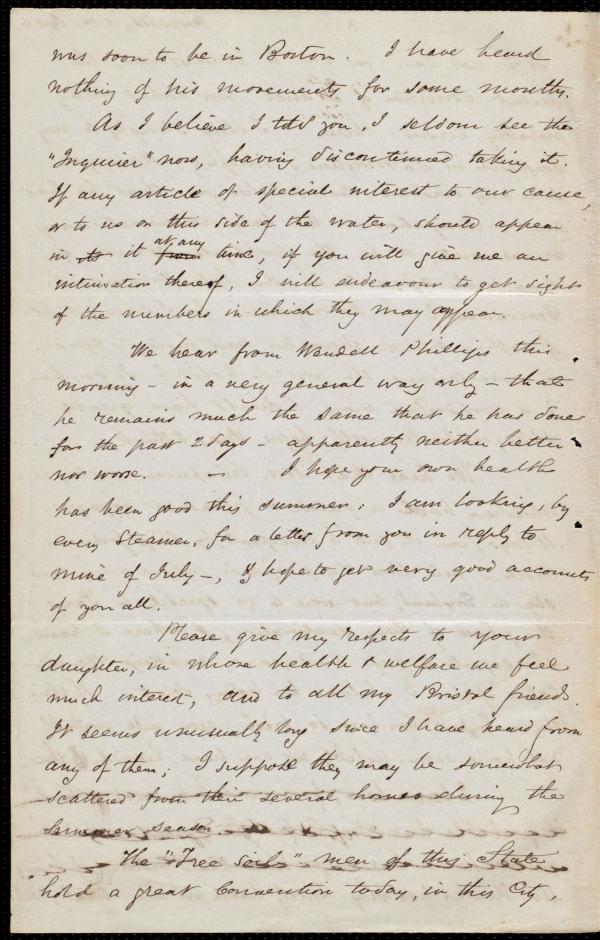 was soon to be in Boston. I have heard
nothing of his movements for some months.
As I believe I told you, I seldom see the
"Inquirer" now, having discontinued taking it.
If any article of special interest to our cause,
or to us on this side of the water, should appear
in its it from at any time, if you will give me an
intimation thereof, I will endeavour to get sight
of the numbers in which they may appear.
We hear from Wendell Phillips this
morning – in a very general way only – that
he remains much the same that he has done
for the past 2 days – apparently neither better
nor worse. — I hope your own health
has been good this summer; I am looking, by
every Steamer, for a letter from you in reply to
mine of July –, & hope to get very good accounts
of you all.
Please give my respects to your
daughter, in whose health & welfare we feel
much interest, and to all my Bristol friends.
It seems unusually long since I have heard from
any of them; I suppose they may be somewhat
scattered from their several homes during the
Summer season.
The "Free soil" men of this State
hold a great Convention today, in this City,